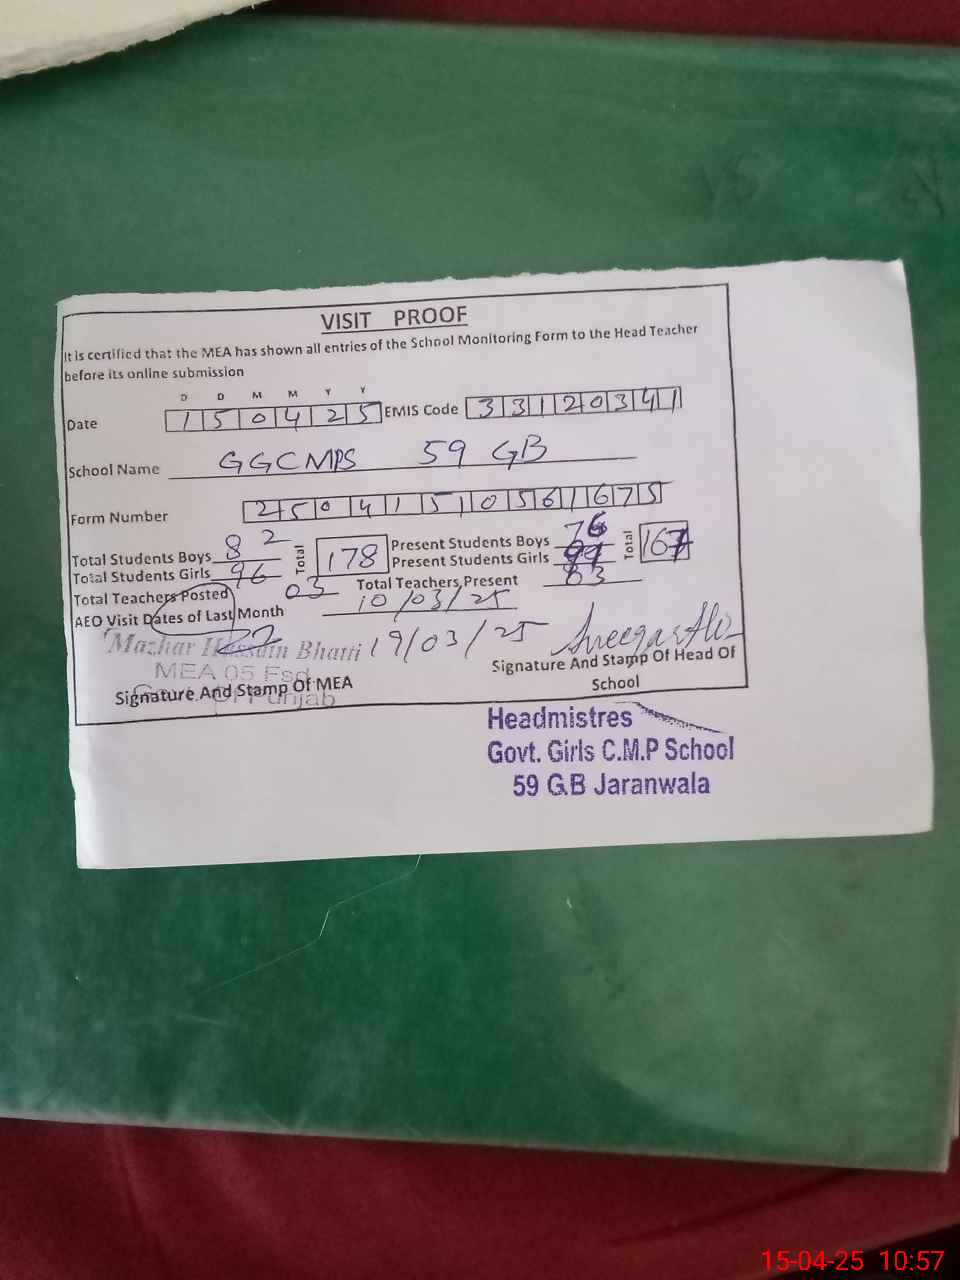 VISIT PROOF
It is certified that the MEA has shown all entries of the School Monitoring Form to the Head Teacher
before its online submission
D D M M Y Y
Date 150425 EMIS Code 33120341
School Name GGCMPS 59 GB
Form Number 25041510561675
Total Students Boys 82 Total 178 Present Students Boys 76 Total 167
Total Students Girls 96 Present Students Girls
Total Teachers Posted 03 Total Teachers Present 03
AEO Visit Dates of Last Month 10/03/25
Mazhar Hussain Bhatti 19/03/25
MEA 05 Fsd
Signature And Stamp Of MEA
Of Punjab
Signature And Stamp Of Head Of
School
Headmistres
Govt. Girls C.M.P School
59 G.B Jaranwala
15-04-25 10:57